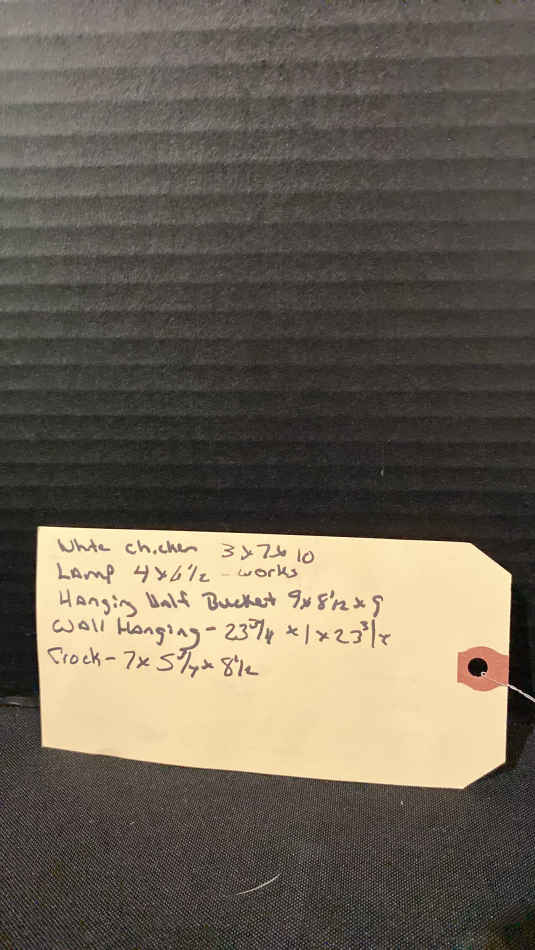 White chicken 3x7x10
Lamp 4x6 1/2 - works
Hanging Half Bucket 9x8 1/2 x 9
Wall Hanging - 23 3/4 x 1 x 23 3/4
Crock - 7x 5 3/4 x 8 1/2